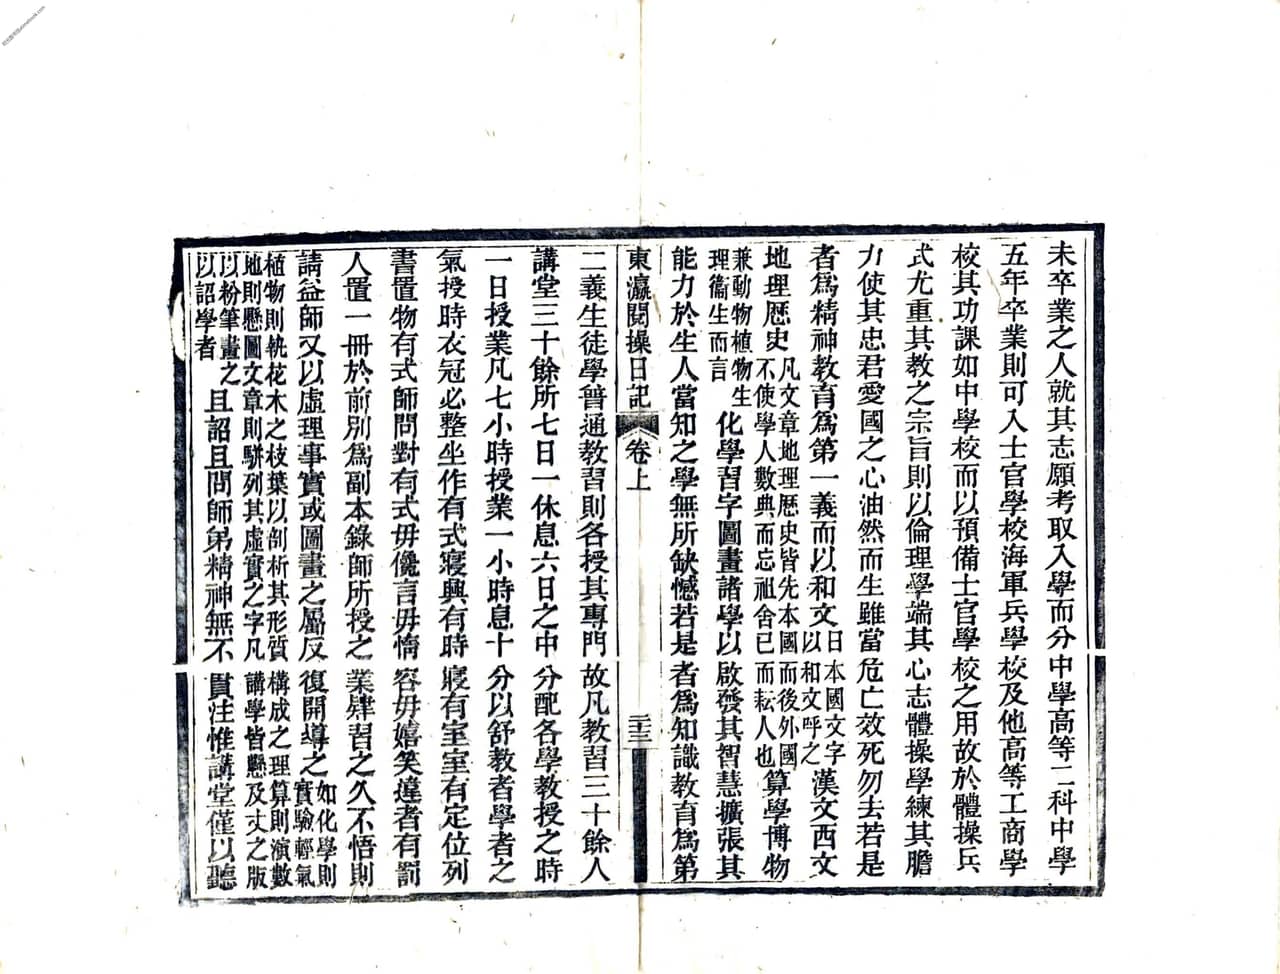 未卒業之人就其志願考取入學而分中學高等二科中學
五年卒業則可入士官學校海軍兵學校及他高等工商學
校其功課如中學校而以預備士官學校之用故於體操兵
式尤重其教之宗旨則以倫理學端其心志體操學練其膽
力使其忠君愛國之心油然而生雖當危亡效死勿去若是
者爲精神教育爲第一義而以和文日本國文字以和文呼之漢文西文
地理歷史凡文章地理歷史皆先本國而後外國不使學人數典而忘祖舍已而耘人也算學博物
兼動物植物生理衞生而言化學習字圖畫諸學以啟發其智慧擴張其
能力於生人當知之學無所缺憾若是者爲知識教育爲第
東瀛閱操日記 卷上 二十三
二義生徒學普通教習則各授其專門故凡教習三十餘人
講堂三十餘所七日一休息六日之中分配各學教授之時
一日授業凡七小時授業一小時息十分以舒教者學者之
氣授時衣冠必整坐作有式寢興有時寢有室室有定位列
書置物有式師問對有式毋儳言毋惰容毋嬉笑違者有罰
人置一冊於前別爲副本錄師所授之業肄習之久不悟則
請益師又以虛理事實或圖畫之屬反復開導之如化學則實驗輕氣
植物則執花木之枝葉以剖析其形質構成之理算則演數地則懸圖文章則駢列其虛實之字凡講學皆懸及丈之版
以粉筆畫之以詔學者且詔且問師弟精神無不貫注惟講堂僅以聽